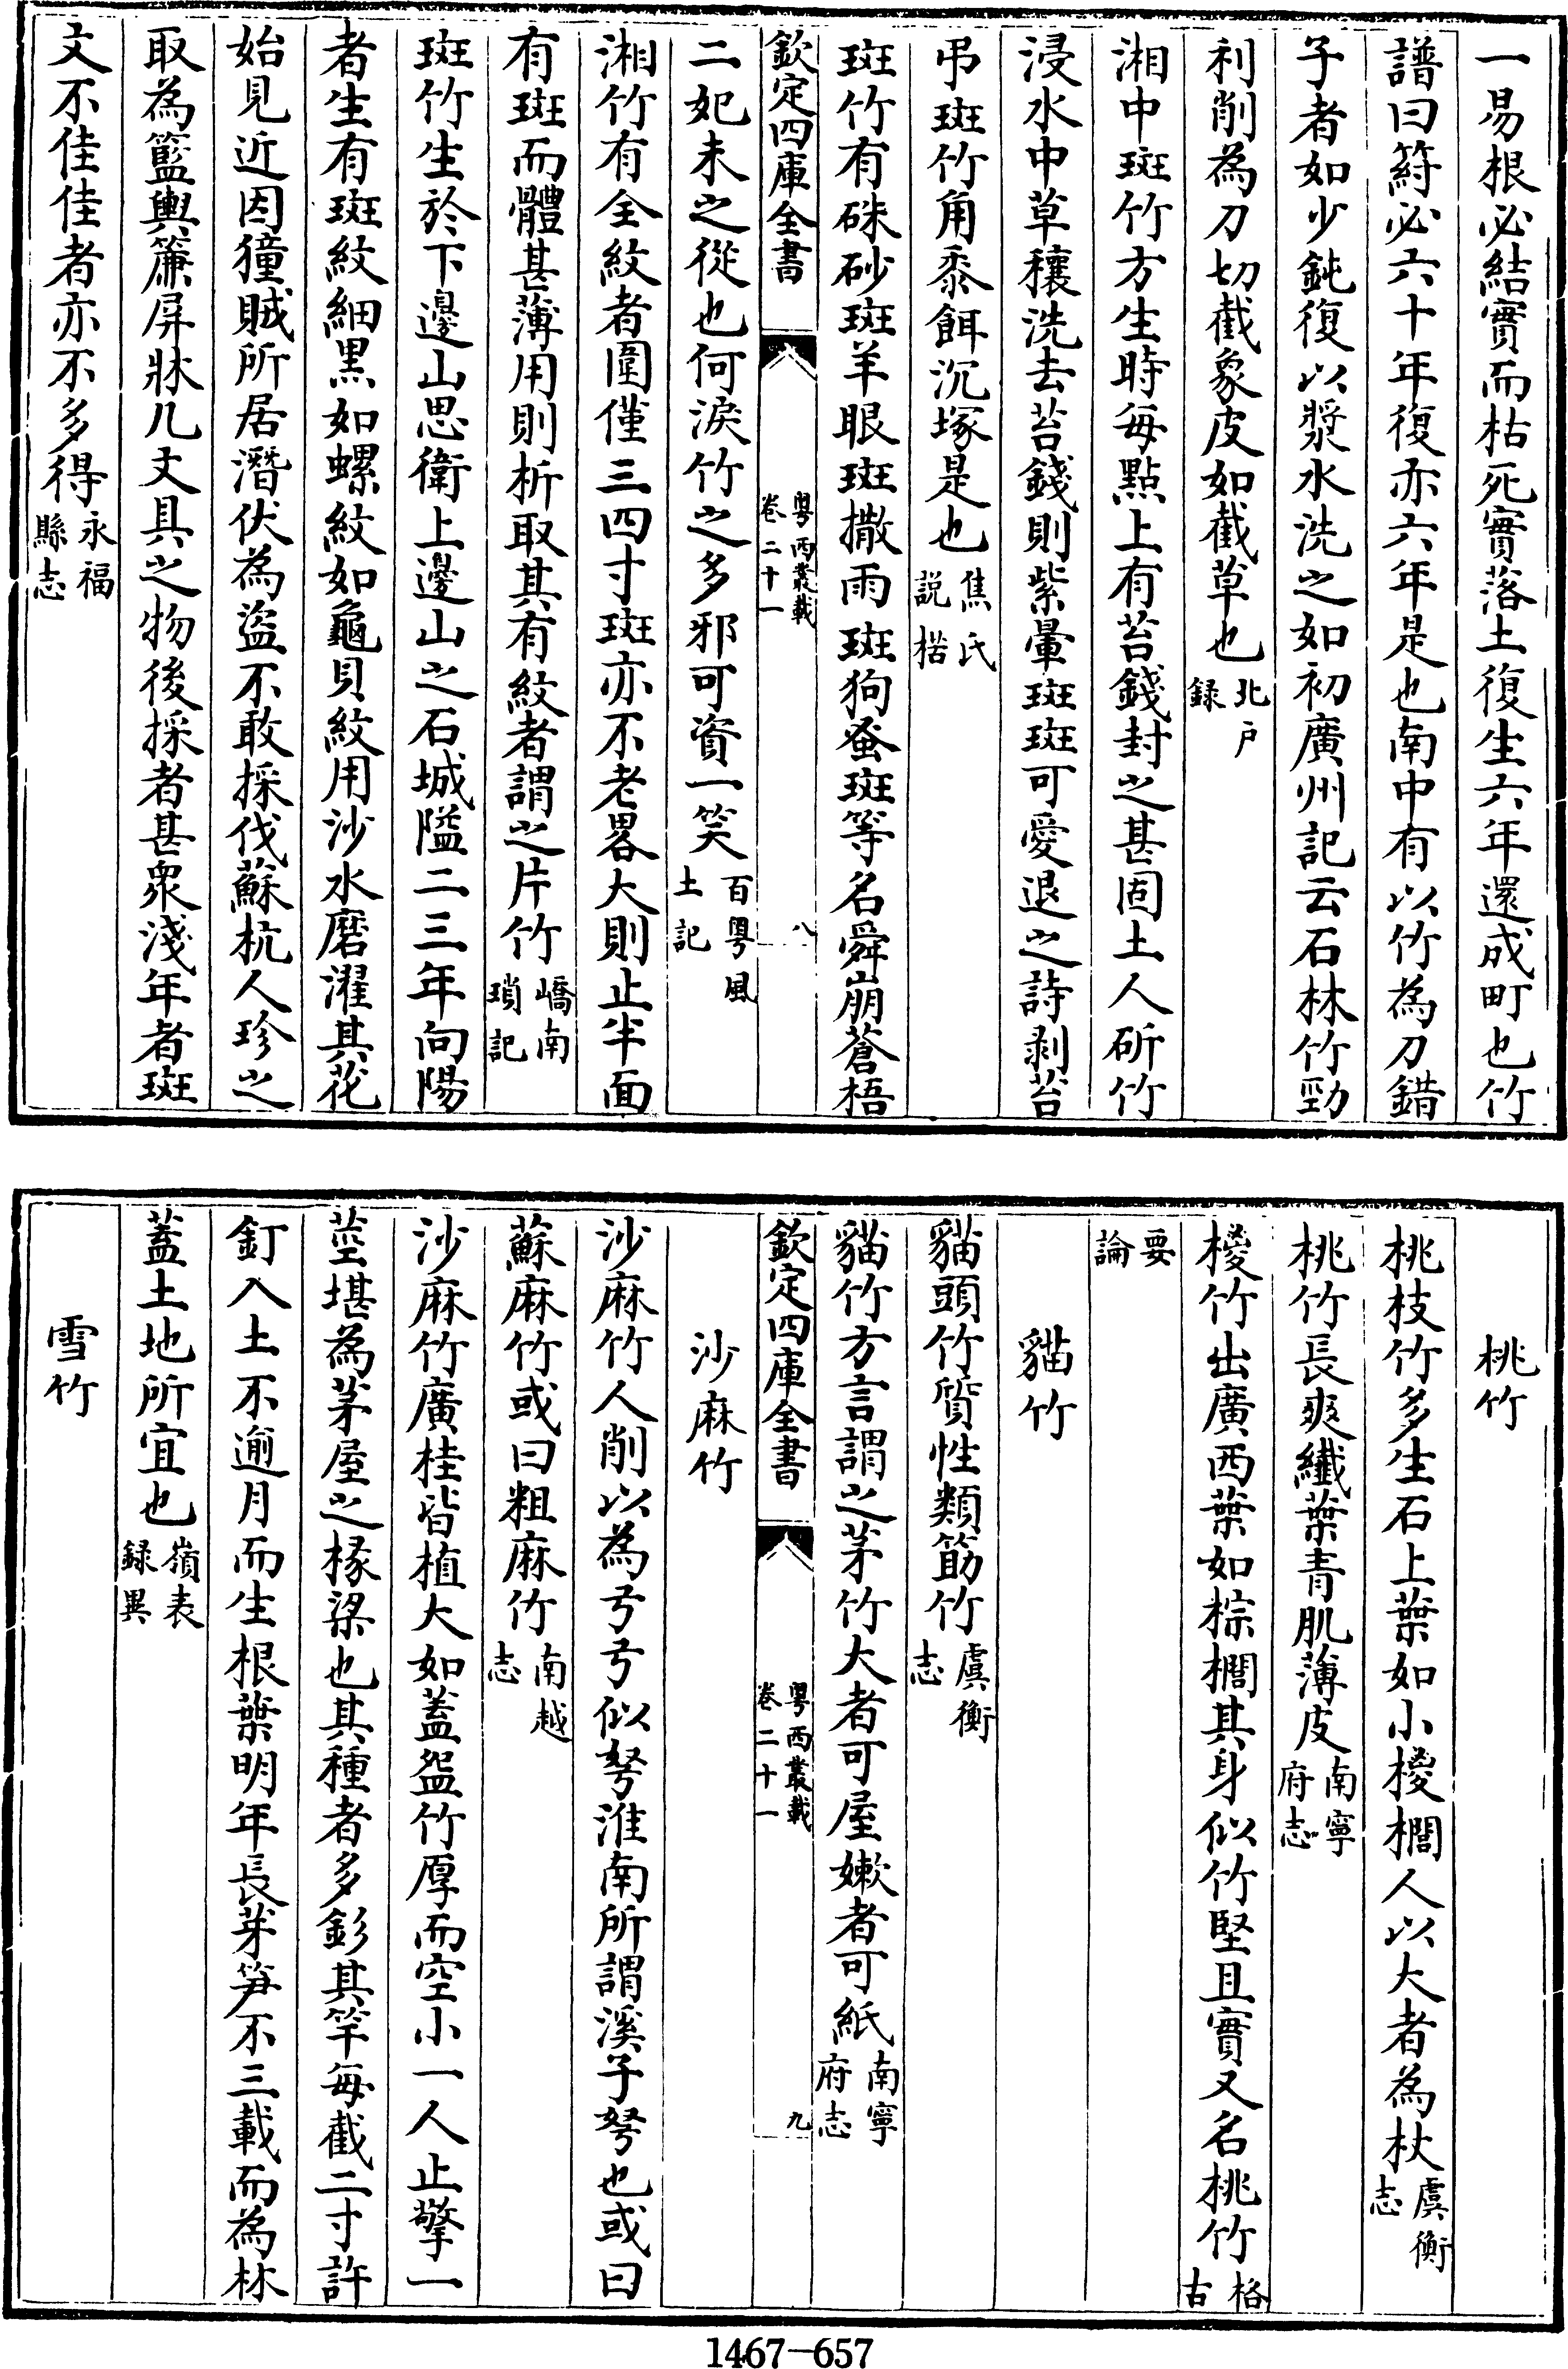 一易根必結實而枯死實落土復生六年還成町也竹
譜曰䈽必六十年復亦六年是也南中有以竹為刀錯
子者如少鈍復以漿水洗之如初廣州記云石林竹勁
利削為刀切截象皮如截草也北户錄
湘中斑竹方生時每點上有苔錢封之甚固土人斫竹
浸水中草穰洗去苔錢則紫暈斑斑可愛退之詩剥苔
弔斑竹角黍餌沉塚是也焦氏説楛
斑竹有硃砂斑羊眼斑撒雨斑狗蚤斑等名舜崩蒼梧
欽定四庫全書 粤西叢載 卷二十一 八
二妃未之從也何淚竹之多邪可資一笑百粤風土記
湘竹有全紋者圍僅三四寸斑亦不老畧大則止半面
有斑而體甚薄用則析取其有紋者謂之片竹嶠南瑣記
斑竹生於下邊山思衛上邊山之石城隘二三年向陽
者生有斑紋細黑如螺紋如龜貝紋用沙水磨濯其花
始見近因獞賊所居潛伏為盜不敢採伐蘇杭人珍之
取為籃輿簾屏牀几文具之物後採者甚衆淺年者斑
文不佳佳者亦不多得永福縣志
桃竹
桃枝竹多生石上葉如小椶櫚人以大者為杖虞衡志
桃竹長爽纖葉青肌薄皮南寧府志
椶竹出廣西葉如棕櫚其身似竹堅且實又名桃竹格古
要論
貓竹
貓頭竹質性類筯竹虞衡志
貓竹方言謂之茅竹大者可屋嫩者可紙南寧府志
欽定四庫全書 粤西叢載 卷二十一 九
沙麻竹
沙麻竹人削以為弓弓似弩淮南所謂溪子弩也或曰
蘇麻竹或曰粗麻竹南越志
沙麻竹廣桂皆植大如蓋盌竹厚而空小一人止擎一
莖堪為茅屋之椽梁也其種者多彭其竿每截二寸許
釘入土不逾月而生根葉明年長芽笋不三載而為林
蓋土地所宜也嶺表錄異
雪竹
1467—657